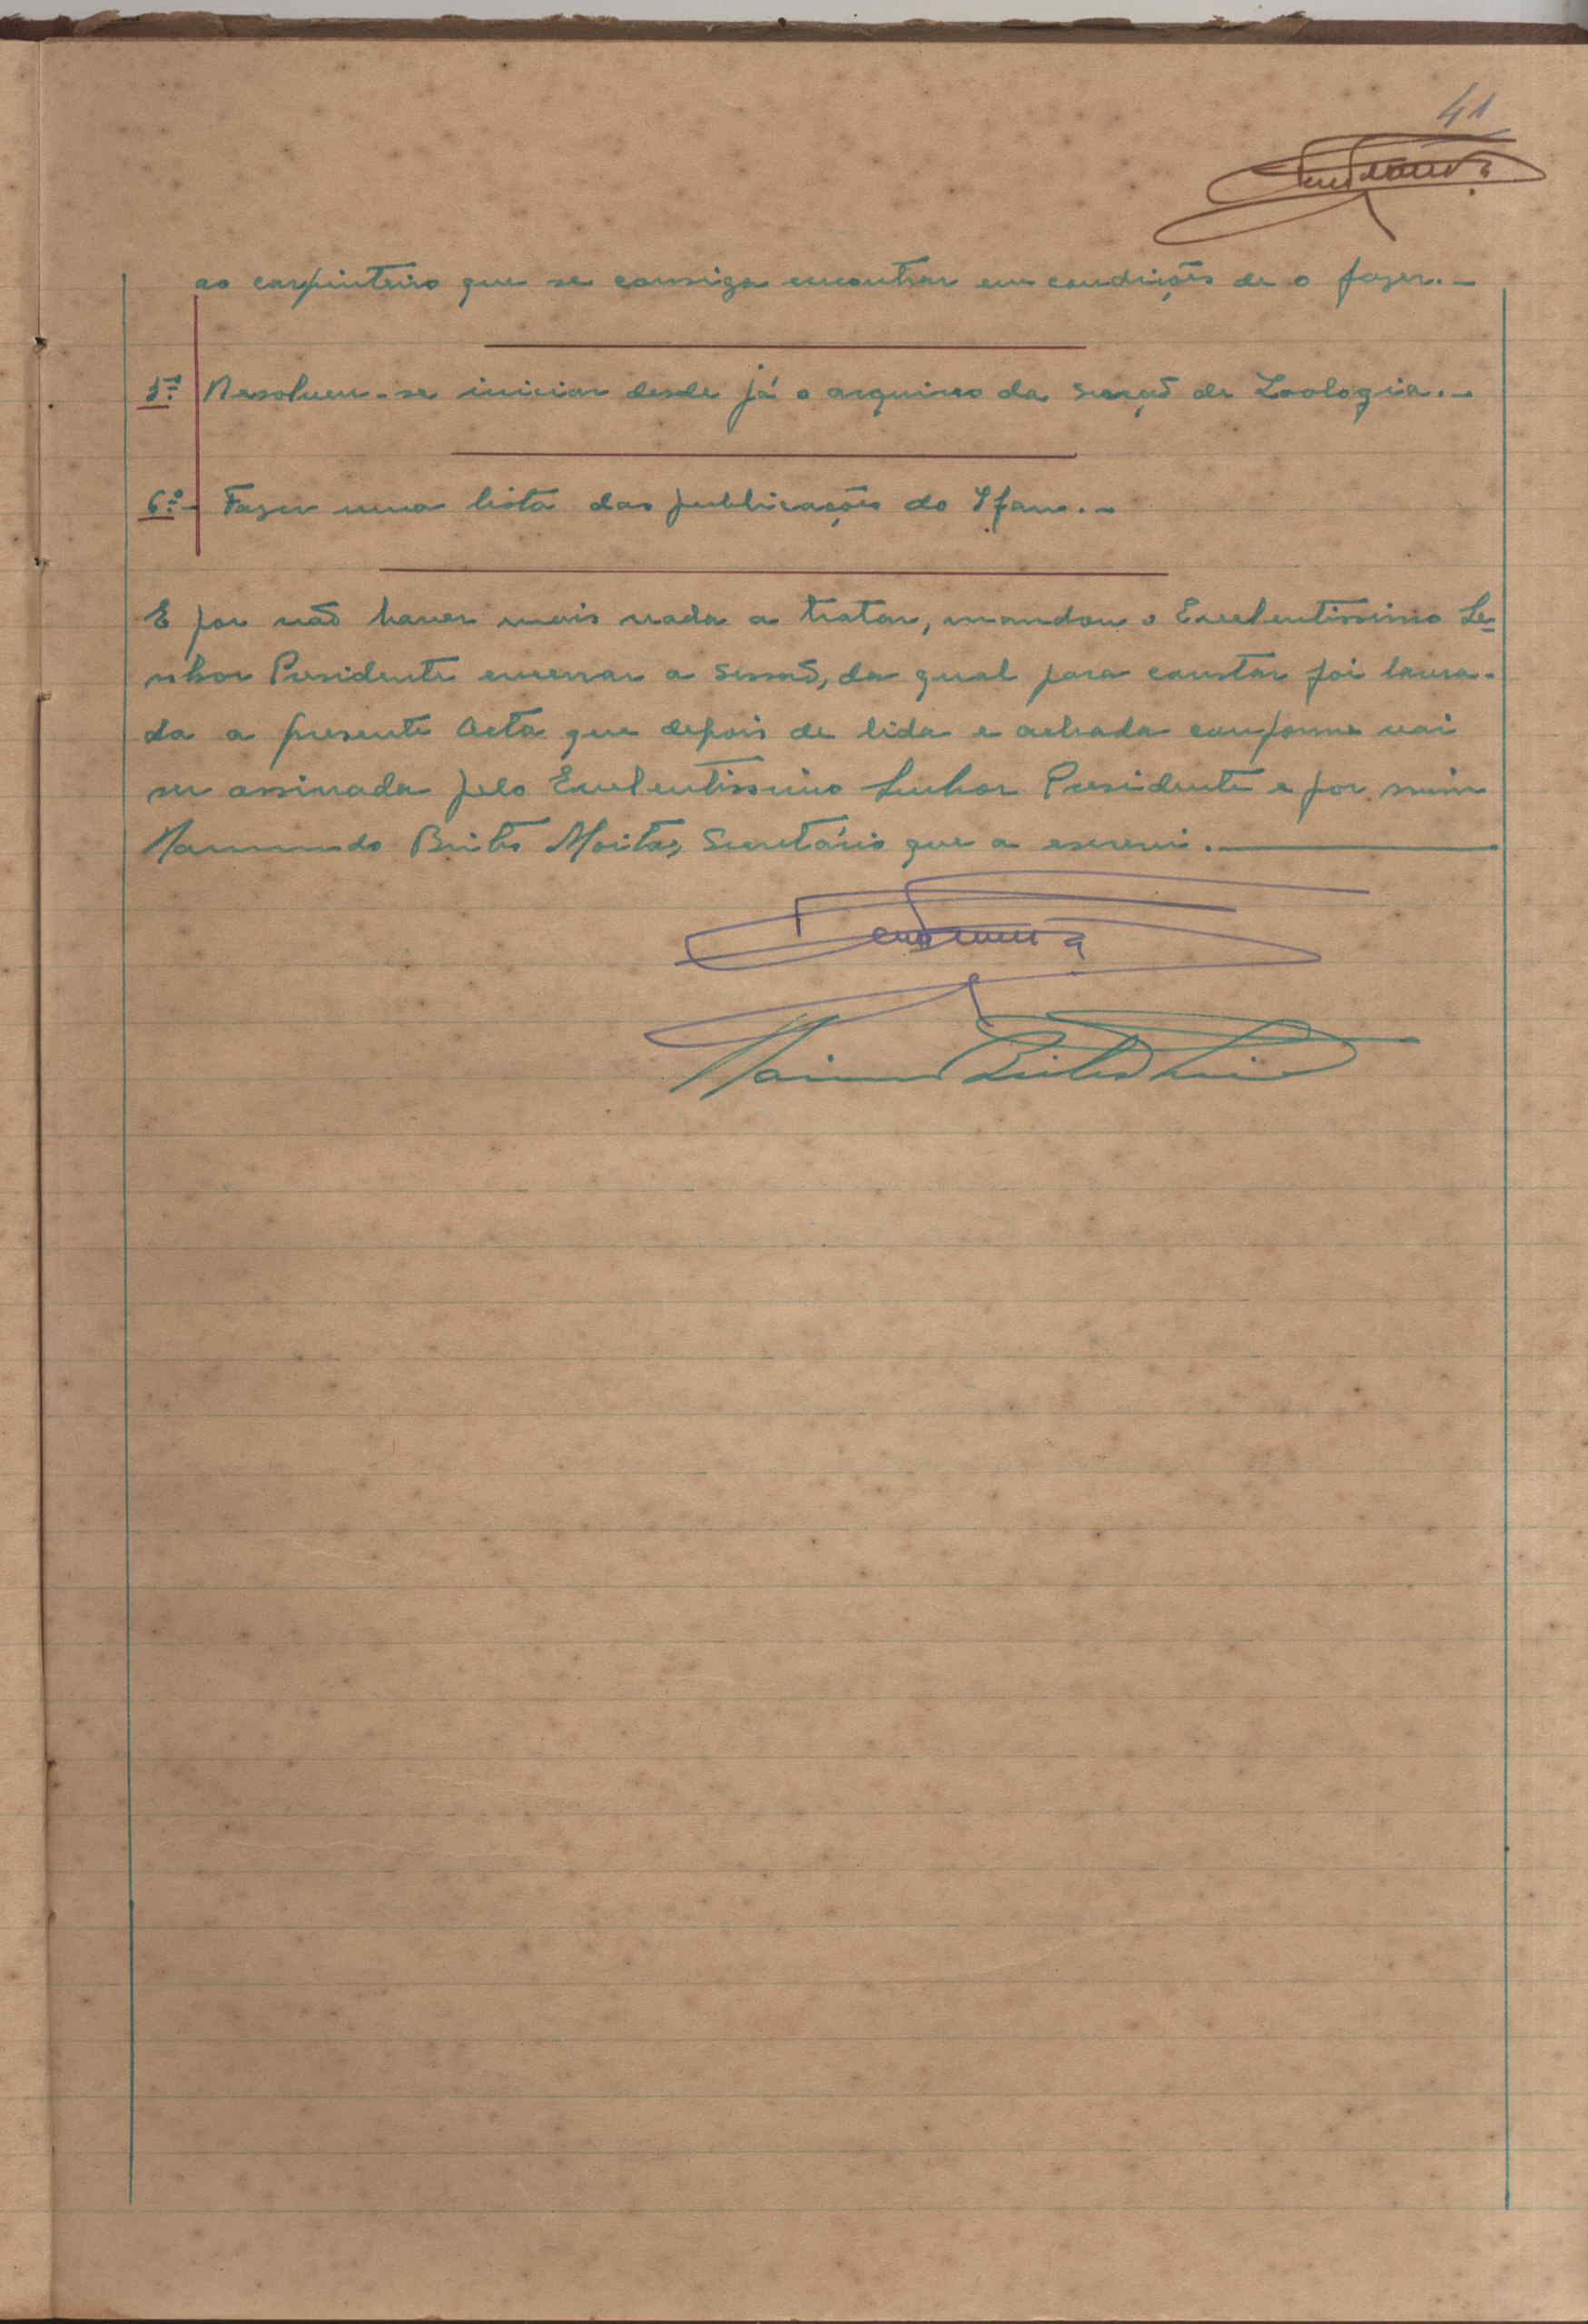 41
ao carpinteiro que se consiga encontrar em condições de o fazer.-
5º- Resolveu-se iniciar desde já o arquivo da secção de Zoologia.-
6º- Fazer uma lista das publicações do Ifan.-
E por não haver mais nada a tratar, mandou o Excelentíssimo Se-
nhor Presidente encerrar a sessão, da qual para constar foi lavra-
da a presente Acta que depois de lida e achada conforme vai
ser assinada pelo Excelentíssimo Senhor Presidente e por mim
Brites Moita, Secretário que a escrevi.